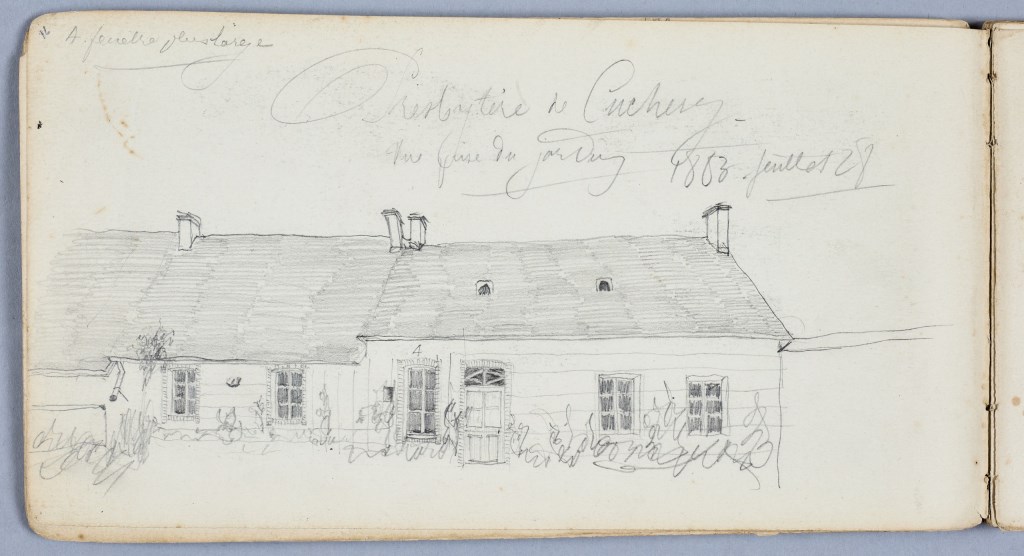 4. fenêtre plus large
Presbytère de Cuchery
Vue prise du jardin 1883 juillet 28
4